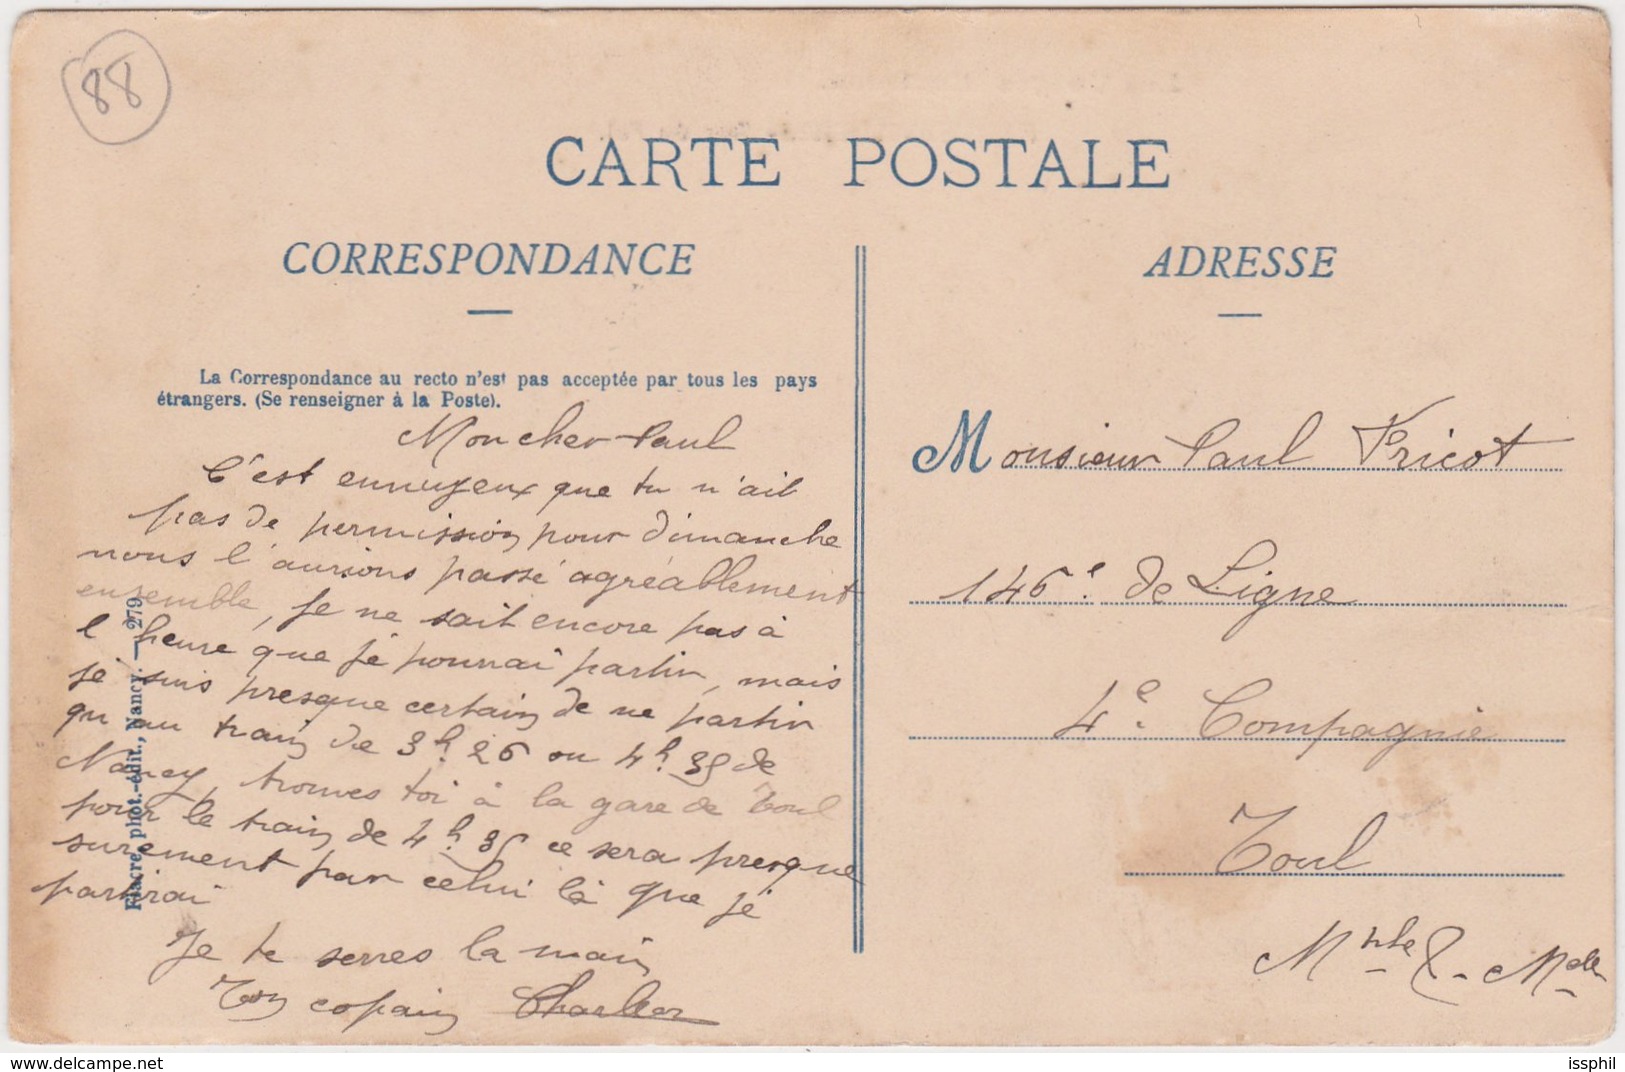 88
CARTE POSTALE
CORRESPONDANCE
La Correspondance au recto n'est pas acceptée par tous les pays
étrangers. (Se renseigner à la Poste).
Mon cher Paul
C'est ennuyeux que tu n'ait
pas de permission pour dimanche
nous l'aurions passé agréablement
ensemble, je ne sait encore pas à
l'heure que je pourrai partir, mais
je suis presque certain de ne partir
qu'au train de 3h 26 ou 4h. 35 de
Nancy, trouves toi à la gare de Toul
pour le train de 4h. 35 ce sera presque
surement par celui là que je
partirai
Je te serres la main
Ton copain Charles
Fiacre, phot.-édit., Nancy. — 279
ADRESSE
Monsieur Paul Fricot
146e. de Ligne
4e. Compagnie
Toul
Mrthe & Melle
www.delcampe.net
issphil